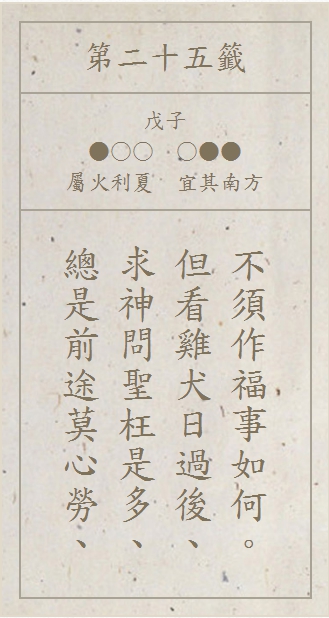 第二十五籤
戊子
●○○ ○●●
屬火利夏 宜其南方
總是前途莫心勞、
求神問聖枉是多、
但看雞犬日過後、
不須作福事如何。